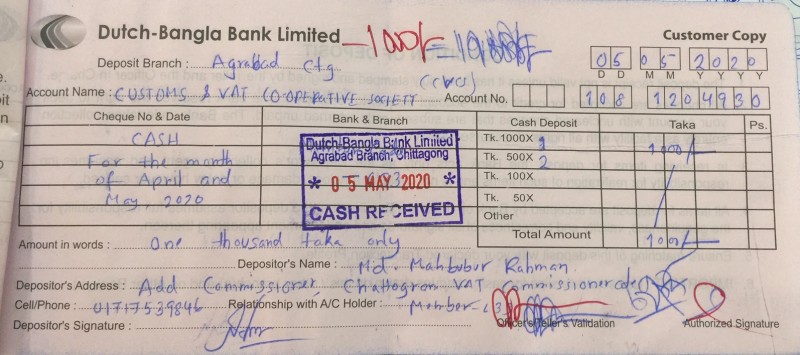 Dutch-Bangla Bank Limited
Customer Copy
Deposit Branch : Agrabad Ctg.
05 05 2020
D D M M Y Y Y Y
(CBC)
Account Name : CUSTOMS & VAT CO-OPERATIVE SOCIETY Account No. 108 1204930
Cheque No & Date Bank & Branch Cash Deposit Taka Ps.
CASH
For the month
of April and
May, 2020
Dutch-Bangla Bank Limited
Agrabad Branch, Chittagong
* 05 MAY 2020 *
CASH RECEIVED
Tk. 1000X
Tk. 500X 2
Tk. 100X
Tk. 50X
Other
Total Amount
Amount in words : One thousand taka only
Depositor's Name : Md. Mahbubur Rahman
Depositor's Address : Add Commissioner Chattogram VAT Commissionerate
Cell/Phone : 01717539846 Relationship with A/C Holder : Member
Depositor's Signature :
Officer's/Teller's Validation Authorized Signature